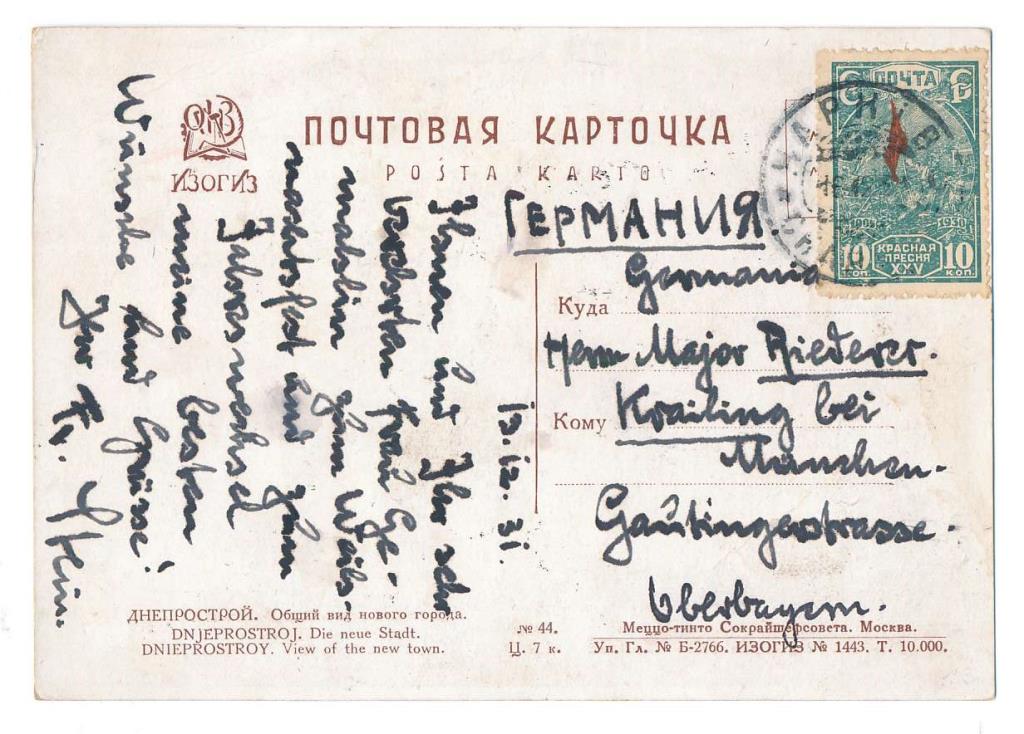 ПОЧТОВАЯ КАРТОЧКА
POSTA KARTO
ИЗОГИЗ
ПОЧТА
1905 1930
10 КОП.
КРАСНАЯ
ПРЕСНЯ
XXV
10 КОП.
12.12.31
Ihnen und Ihrer sehr
verehrten Frau Ge-
mahlin zum Weih-
nachtsfest und zum
Jahreswechsel
meine besten
Wünsche und Grüsse!
Ihr Fr.
ГЕРМАНИЯ.
Germania
Куда
Herrn Major Riederer.
Кому
Krailing bei
München.
Gautingerstrasse.
Oberbayern.
ДНЕПРОСТРОЙ. Общий вид нового города.
DNJEPROSTROJ. Die neue Stadt.
DNIEPROSTROY. View of the new town.
№ 44.
Ц. 7 к.
Меццо-тинто Сокрайшефсовета. Москва.
Уп. Гл. № Б-2766. ИЗОГИЗ № 1443. Т. 10.000.